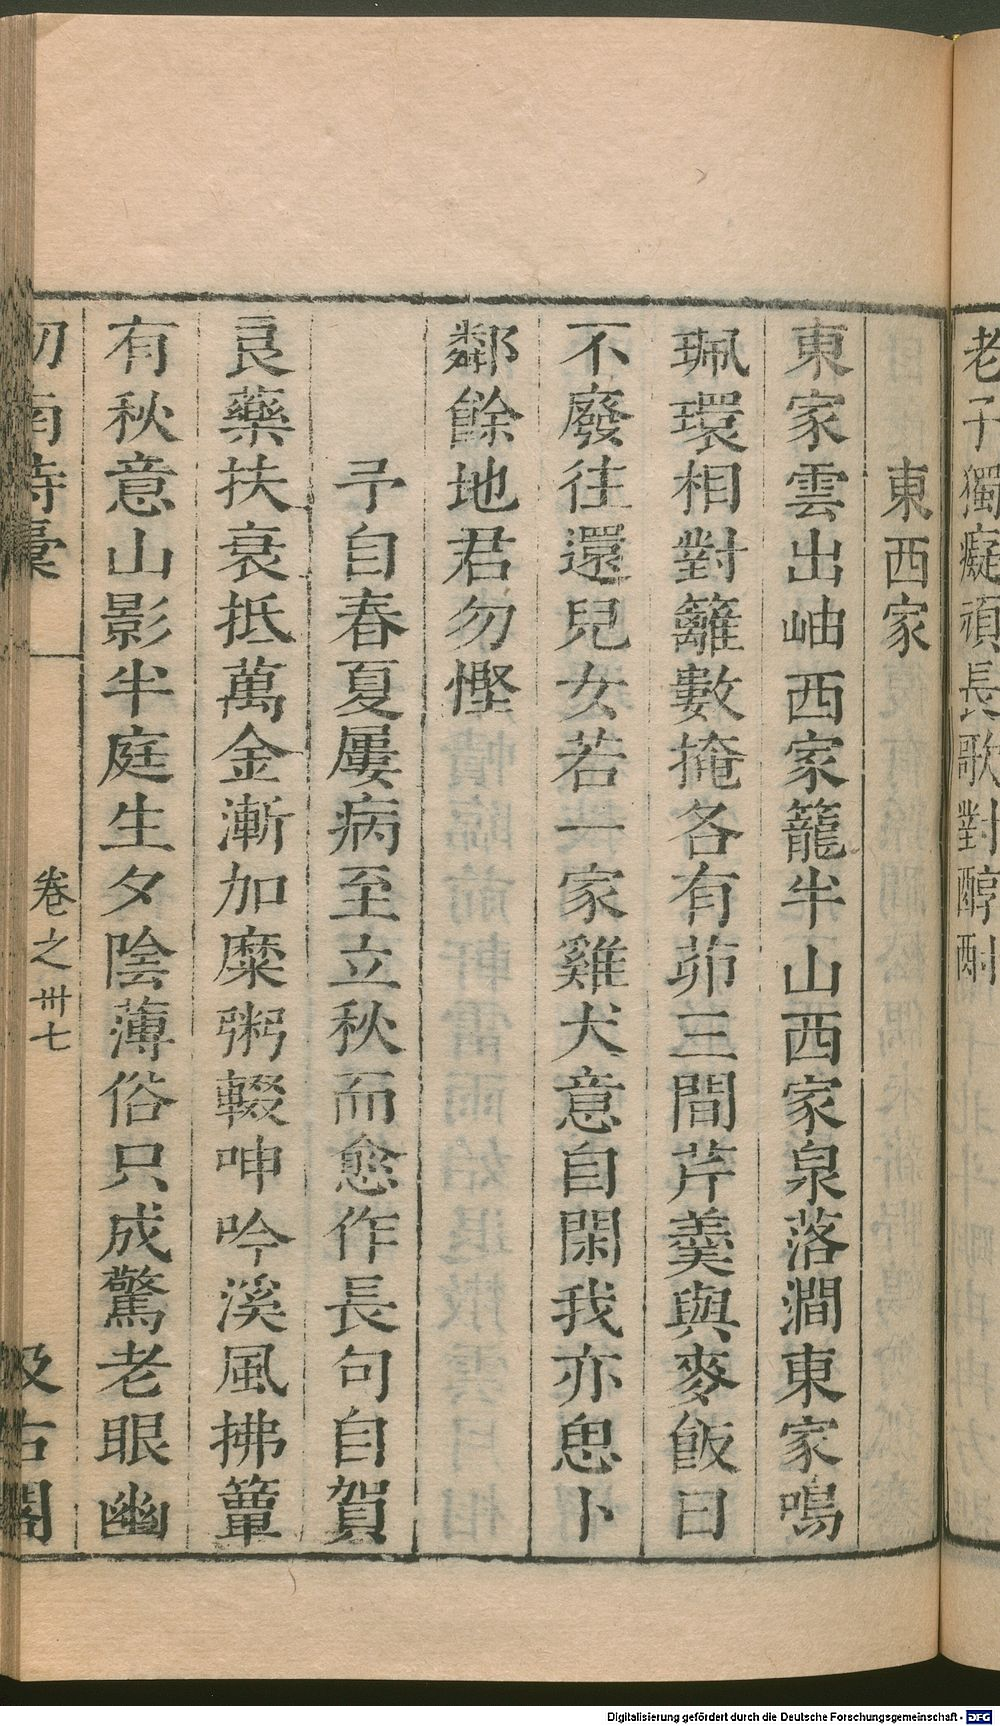 老子獨癡頑長歌對醇酎
東西家
東家雲出岫西家籠半山西家泉落澗東家鳴
珮環相對籬數掩各有茆三間芹羹與麥飯日
不廢往還兒女若一家雞犬意自閑我亦思卜
鄰餘地君勿慳
予自春夏屢病至立秋而愈作長句自賀
良藥扶衰抵萬金漸加糜粥輟呻吟溪風拂簟
有秋意山影半庭生夕陰薄俗只成驚老眼幽
劒南詩稾
卷之卅七
汲古閣
Digitalisierung gefördert durch die Deutsche Forschungsgemeinschaft - DFG